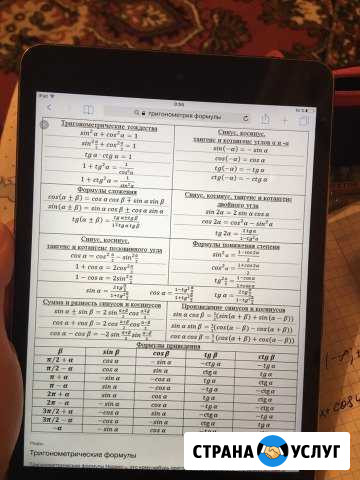 iPad
0:56
тригонометрия формулы
Тригонометрические тождества
sin²α + cos²α = 1
sin² α/2 + cos² α/2 = 1
tg α · ctg α = 1
1 + tg²α = 1/cos²α
1 + ctg²α = 1/sin²α
Синус, косинус,
тангенс и котангенс углов α и -α
sin(−α) = − sin α
cos(−α) = cos α
tg(−α) = −tg α
ctg(−α) = −ctg α
Формулы сложения
cos(α ± β) = cos α cos β ∓ sin α sin β
sin(α ± β) = sin α cos β ± cos α sin α
tg(α ± β) = tg α ± tg β/1∓tg α tg β
Синус, косинус, тангенс и котангенс
двойного угла
sin 2α = 2 sin α cos α
cos 2α = cos²α − sin²α
tg 2α = 2 tg α/1−tg²α
Синус, косинус,
тангенс и котангенс половинного угла
cos α = cos² α/2 − sin² α/2
1 + cos α = 2cos² α/2
1 − cos α = 2sin² α/2
Формулы понижения степени
sin²α = 1−cos2α/2
cos²α = 1+cos2α/2
tg² α/2 = 1−cosα/1+cosα
Сумма и разность синусов и косинусов
Произведение синусов и косинусов
sin α cos β = ½(sin(α + β) + sin(α − β))
sin α sin β = ½(cos(α − β) − cos(α + β))
cos α cos β = ½(cos(α + β) + cos(α − β))
Формулы приведения
β sin β cos β tg β ctg β
π/2 + α cos α − sin α −ctg α −tg α
π/2 − α cos α sin α ctg α tg α
π + α − sin α −cos α tg α ctg α
π − α sin α −cos α −tg α −ctg α
2π + α sin α cos α tg α ctg α
2π − α − sin α cos α −tg α −ctg α
3π/2 + α −cos α sin α −ctg α
3π/2 − α −cos α − sin α ctg α
−α − sin α cos α
Тригонометрические формулы
СТРАНА УСЛУГ